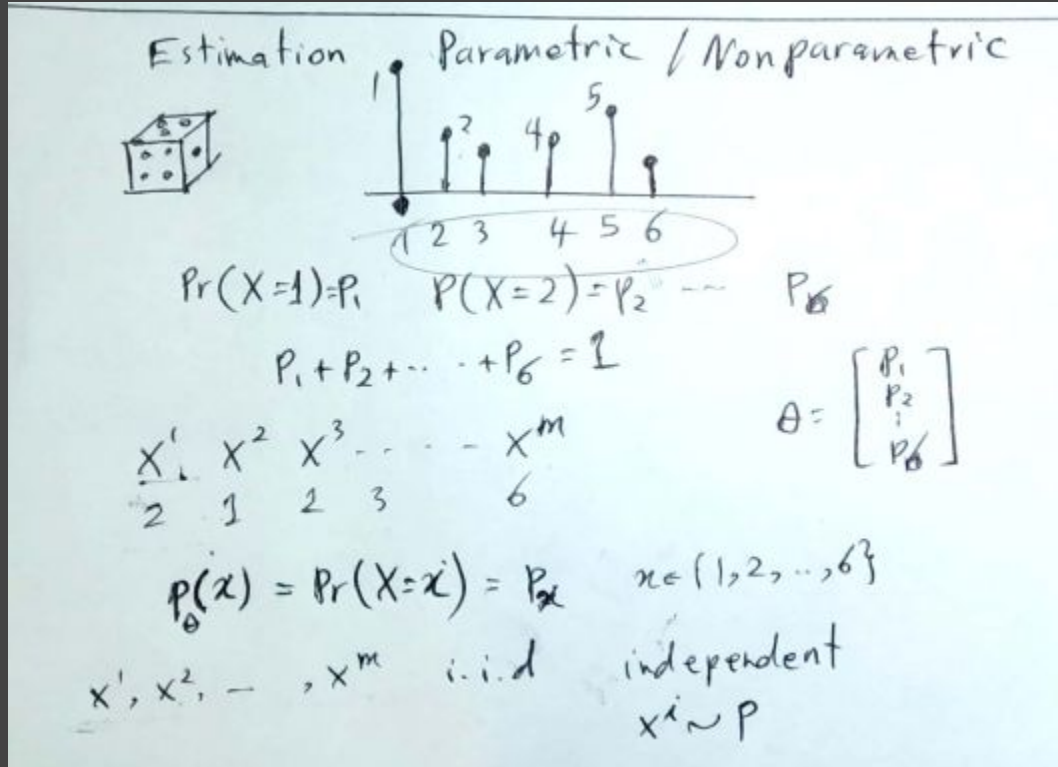 Estimation Parametric / Nonparametric
1 2 4 5
1 2 3 4 5 6
Pr(X=1)=P₁ P(X=2)=P₂ --- P₆
P₁+P₂+... .+P₆ = 1
θ = [P₁ P₂ ⋮ P₆]
x¹. x² x³ - - . . - x^m
2 1 2 3 6
p_θ(x) = Pr(X=x) = Pₓ x∈{1,2,..,6}
x¹, x², – , x^m i.i.d independent
xⁱ ~ P